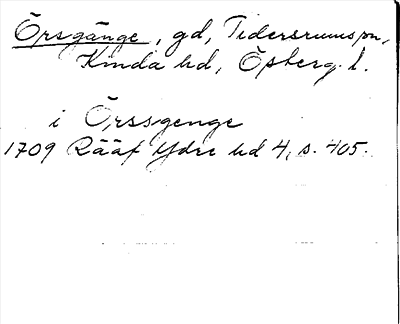 Örsgänge, gd, Tidersrums sn,
Kinda hd, Östberg. l.
i Örssgenge
1709 Rääf Ydre hd 4, s. 405.